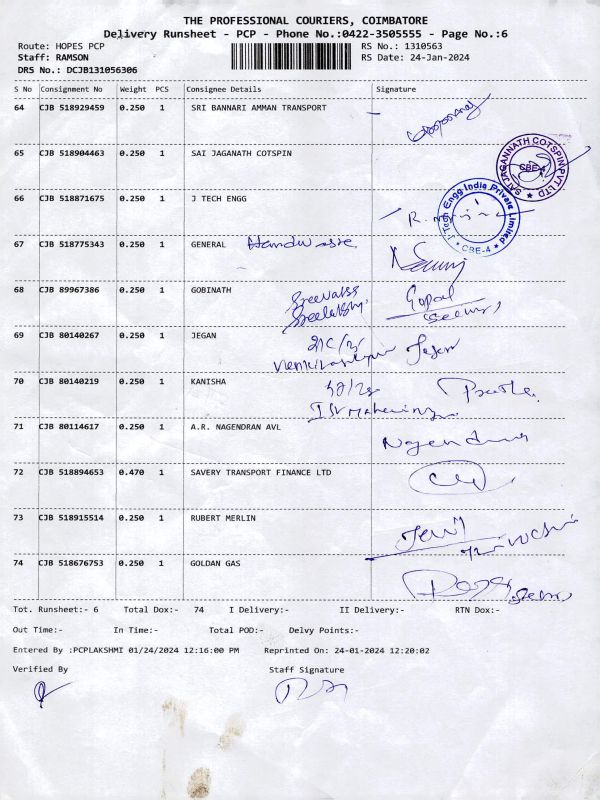 THE PROFESSIONAL COURIERS, COIMBATORE
Delivery Runsheet - PCP - Phone No.:0422-3505555 - Page No.:6
Route: HOPES PCP
RS No.: 1310563
Staff: RAMSON
RS Date: 24-Jan-2024
DRS No.: DCJB131056306
S No Consignment No Weight PCS Consignee Details Signature
64 CJB 518929459 0.250 1 SRI BANNARI AMMAN TRANSPORT
65 CJB 518904463 0.250 1 SAI JAGANATH COTSPIN
SAI JAGANNATH COTSPIN PVT LTD
CBE-4
66 CJB 518871675 0.250 1 J TECH ENGG
J Tech Engg India Private Limited
CBE-4
67 CJB 518775343 0.250 1 GENERAL
68 CJB 89967386 0.250 1 GOBINATH
Gopal
69 CJB 80140267 0.250 1 JEGAN
70 CJB 80140219 0.250 1 KANISHA
71 CJB 80114617 0.250 1 A.R. NAGENDRAN AVL
72 CJB 518894653 0.470 1 SAVERY TRANSPORT FINANCE LTD
73 CJB 518915514 0.250 1 RUBERT MERLIN
74 CJB 518676753 0.250 1 GOLDAN GAS
Tot. Runsheet:- 6 Total Dox:- 74 I Delivery:- II Delivery:- RTN Dox:-
Out Time:- In Time:- Total POD:- Delvy Points:-
Entered By :PCPLAKSHMI 01/24/2024 12:16:00 PM Reprinted On: 24-01-2024 12:20:02
Verified By Staff Signature